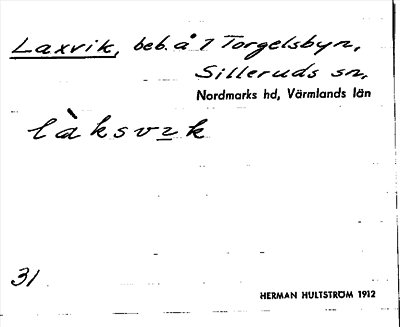 Laxvik, beb. å 7 Torgelsbyn,
Silleruds sn,
Nordmarks hd, Värmlands län
làksvik
31
HERMAN HULTSTRÖM 1912